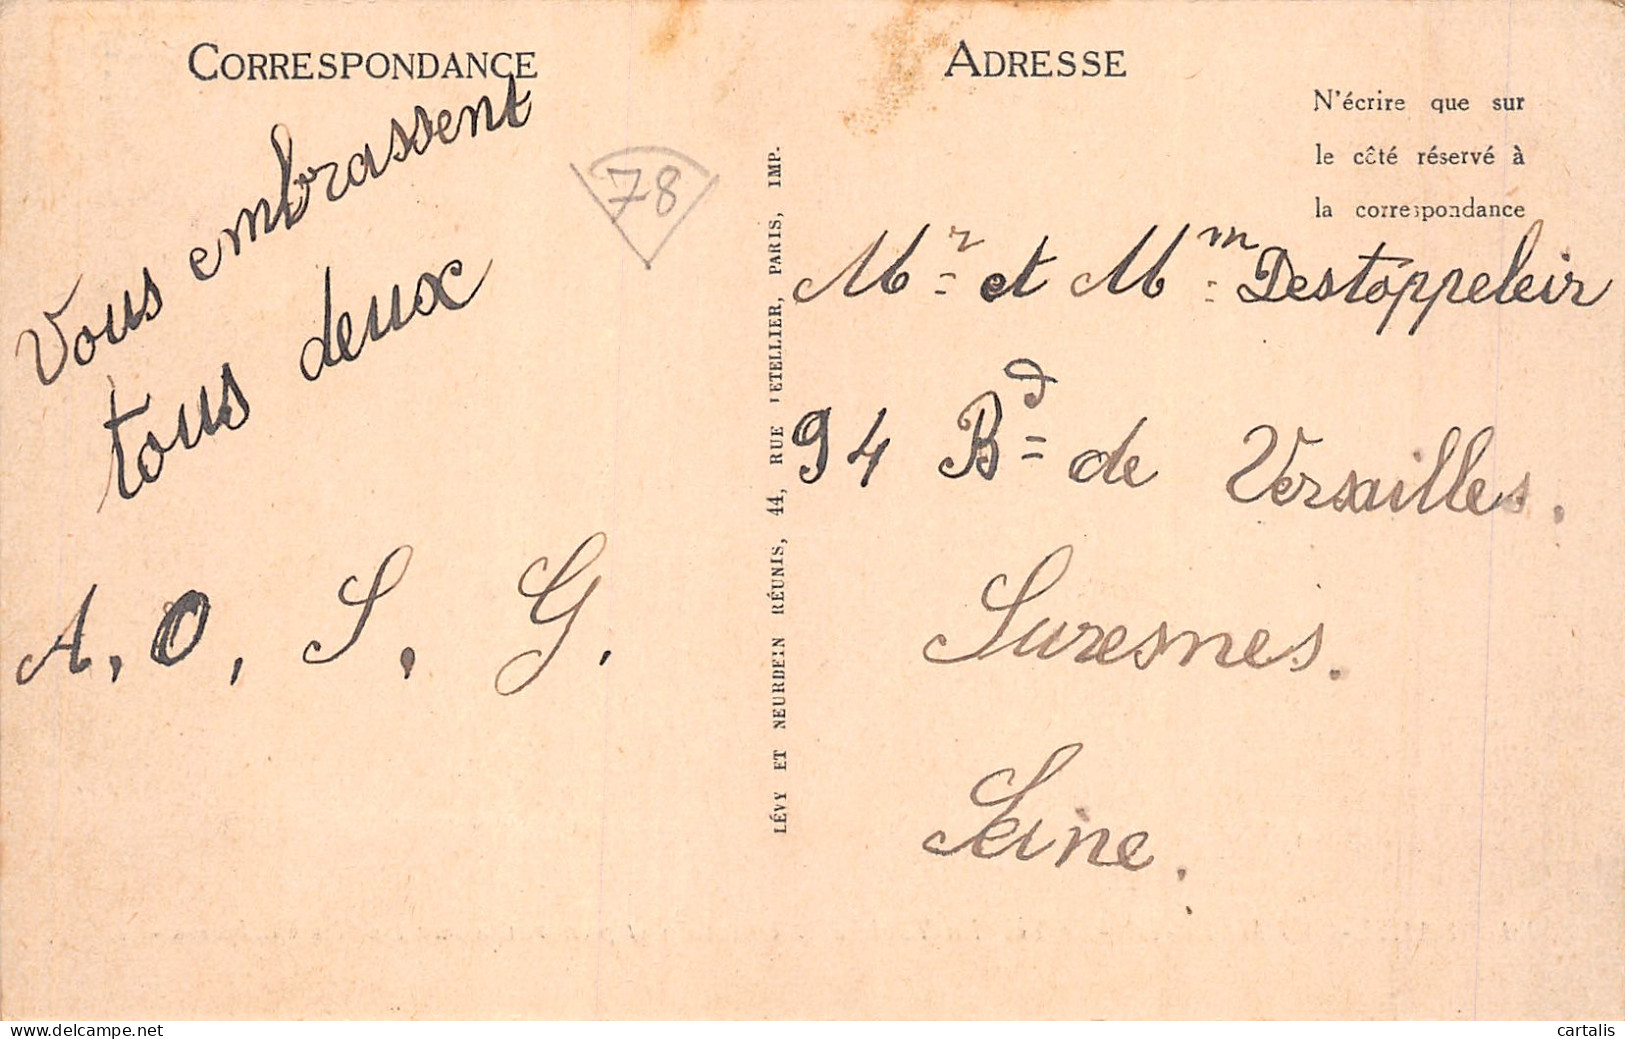 CORRESPONDANCE
Vous embrassent
tous deux
A, O, S, G,
78
LÉVY ET NEURDEIN RÉUNIS, 44, RUE LETELLIER, PARIS, IMP.
ADRESSE
N'écrire que sur
le côté réservé à
la correspondance
Mr et Mm Destoppeleir
94 Bd de Versailles.
Suresnes.
Seine.
delcampe.net
cartalis